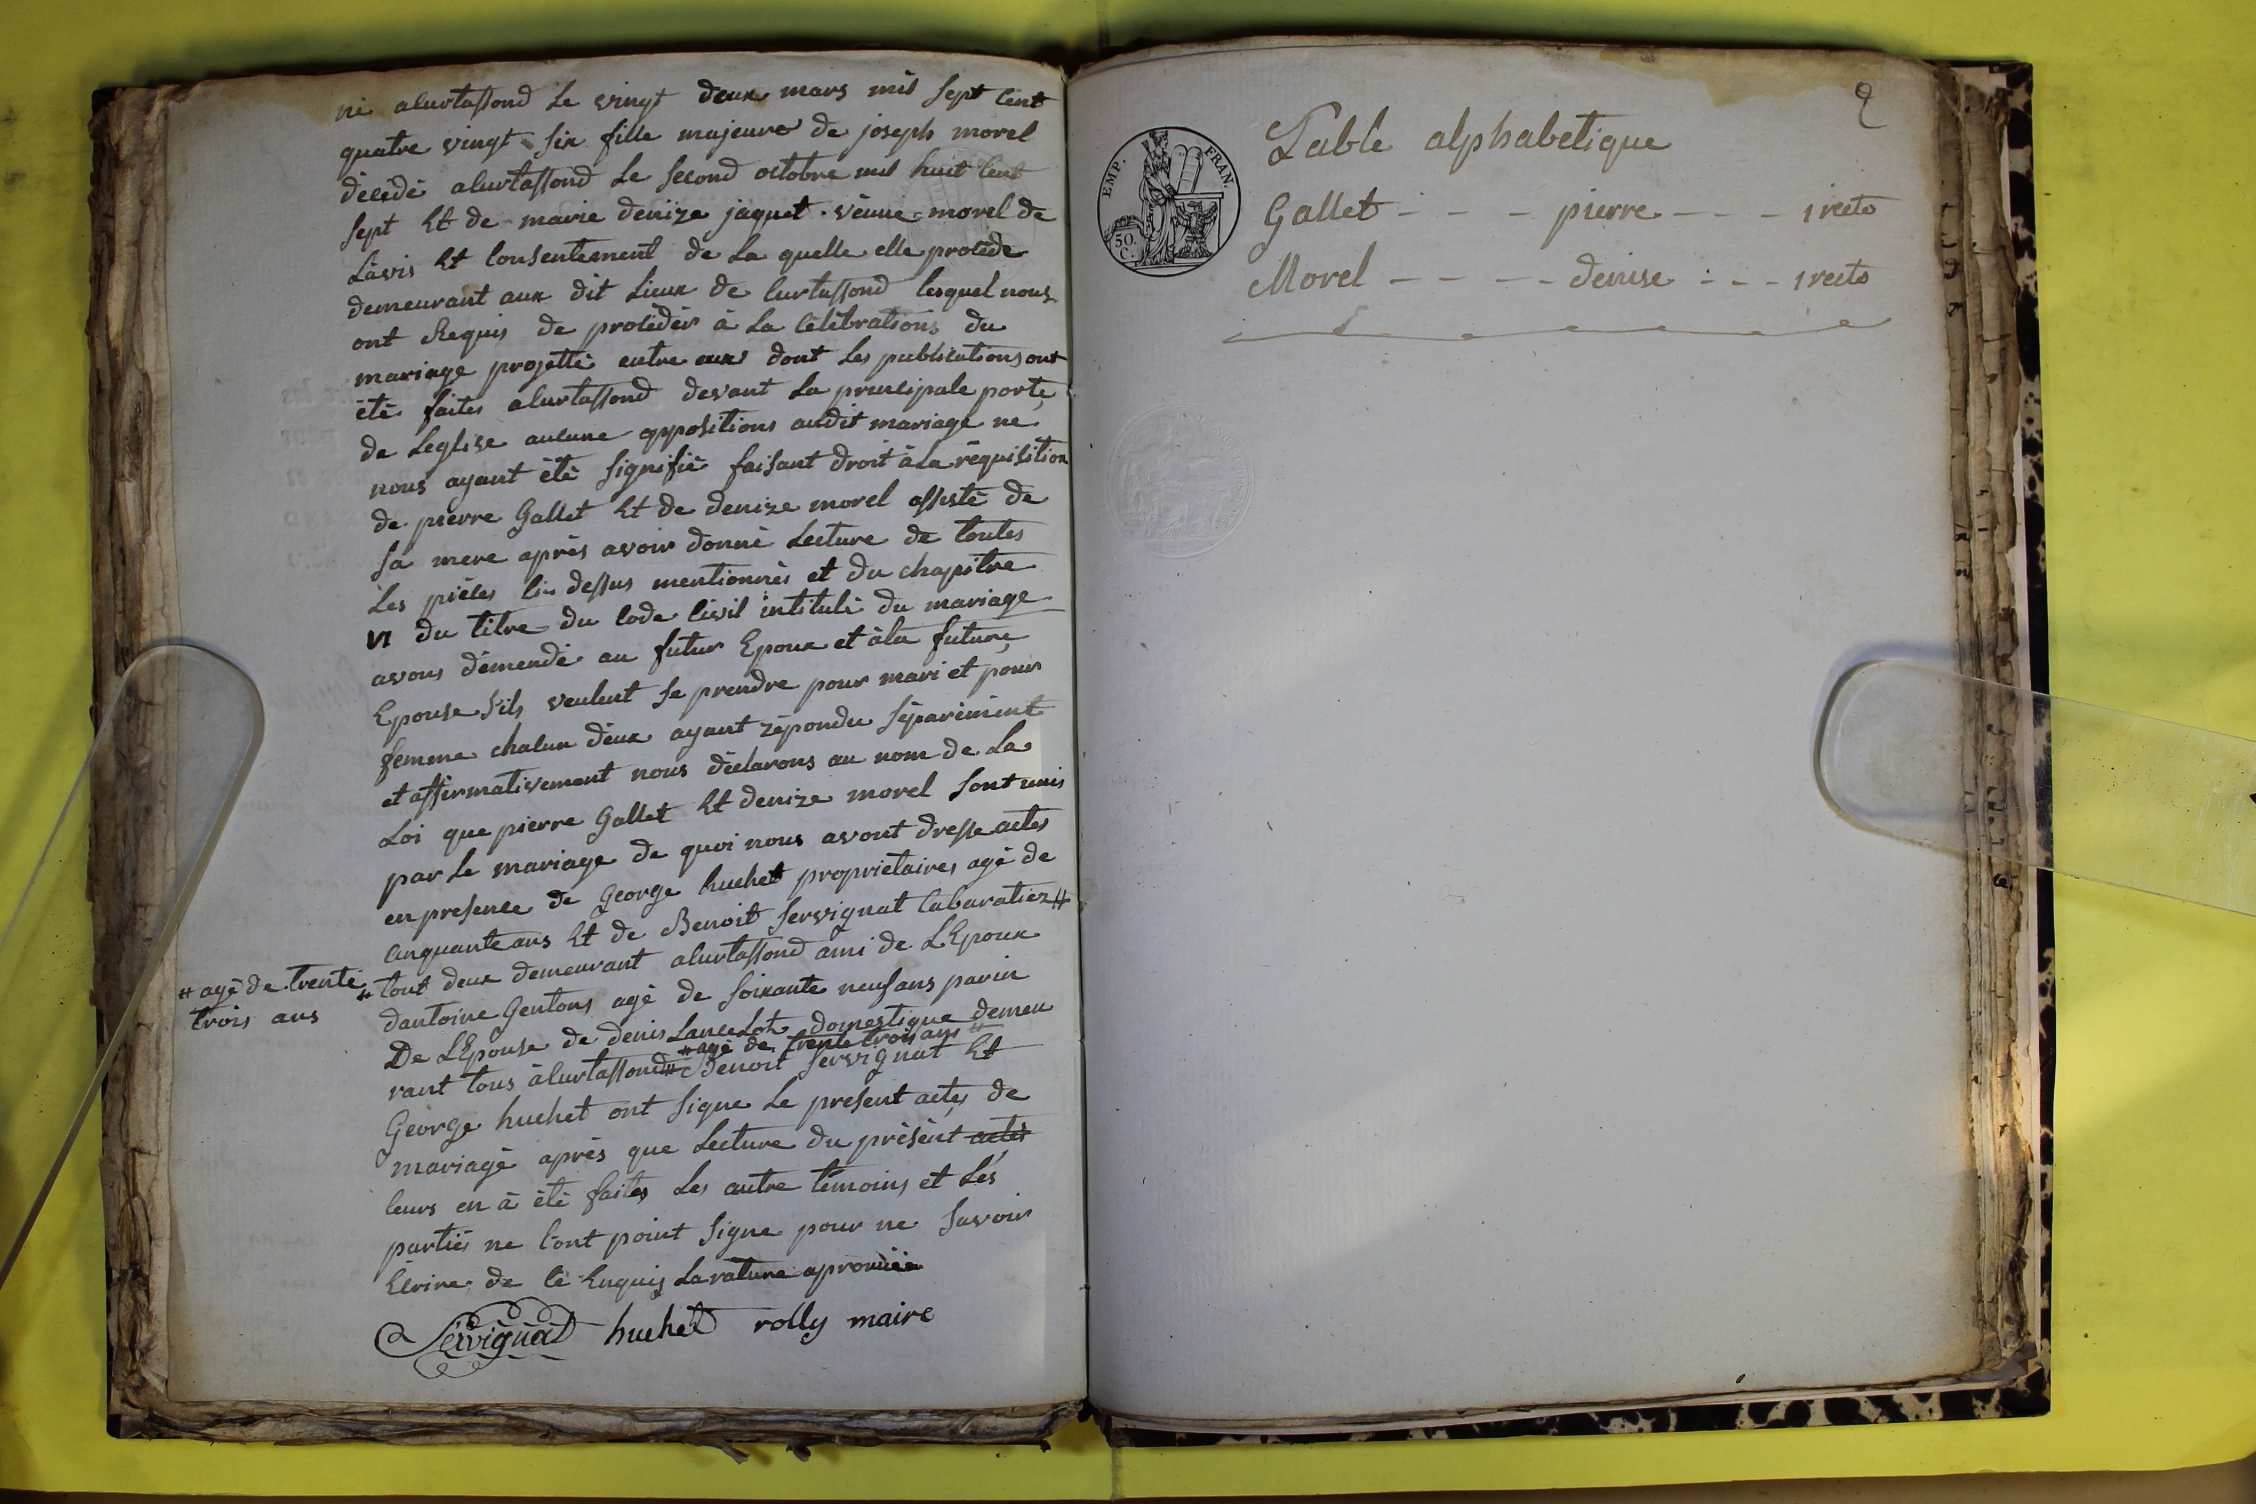 né a Curtassond Le vingt deux mars mil sept Cent
quatre vingt six fille majeure de joseph morel
décédé a Curtassond Le second octobre mil huit Cent
sept Et de marie denize jaquet veuve morel de
Lavis Et Consentement de La quelle elle procede
demeurant aux dit Lieux de Curtassond lesquel nous
ont Requis de procéder à La Célébrations du
mariage projetté entre eux dont Les publications ont
été faites a Curtassond devant La principale porte
de Leglise aucune oppositions audit mariage ne
nous ayant été signifié faisant droit à La réquisition
de pierre Gallet Et de denize morel assisté de
sa mere après avoir donné Lecture de toutes
Les pièces Ci dessus mentionnés et du chapitre
VI du titre du Code Civil intitulé du mariage
avons démendé au futur Epoux et à la future
Epouse s'ils veulent se prendre pour mari et pour
femme chacun d'eux ayant répondu séparément
et affirmativement nous déclarons au nom de La
Loi que pierre Gallet Et denize morel sont unis
par Le mariage de quoi nous avont dresse actes
en presence de George huchet proprietaires agé de
Cinquante ans Et de Benoit Servignat Cabaratiez #
# agé de trente
trois ans
# tout deux demeurant a Curtassond ami de L'Epoux
dantoine Gentons agé de soixante neuf ans parin
De L'Epouse de denis Lancelot domestique demeu
# agé de trente trois ans #
rant tous à Curtassond # Benoit Servignat Et
George huchet ont signe Le present actes de
mariagé après que Lecture du présent actes
leurs en à été faites Les autre témoins et Lés
parties ne L'ont point signe pour ne savoir
Ecrire de Ce Enquis La rature aprouvée
Servignat huchet rolly maire
2
EMP. FRAN.
50.
C.
Table alphabetique
Gallet - - - pierre - - - 1 recto
Morel - - - - denise - - - 1 recto